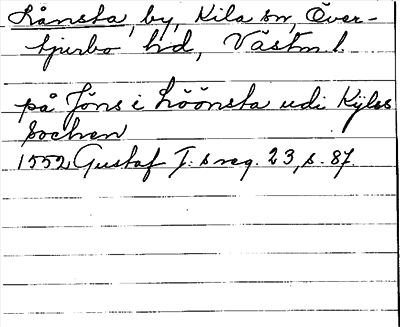 Lånsta, by, Kila sn, Över-
tjurbo hd, Västm. l.
på Jöns i Löönsta udi Kijles
sochen
1552 Gustaf I:s reg. 23, s. 87.